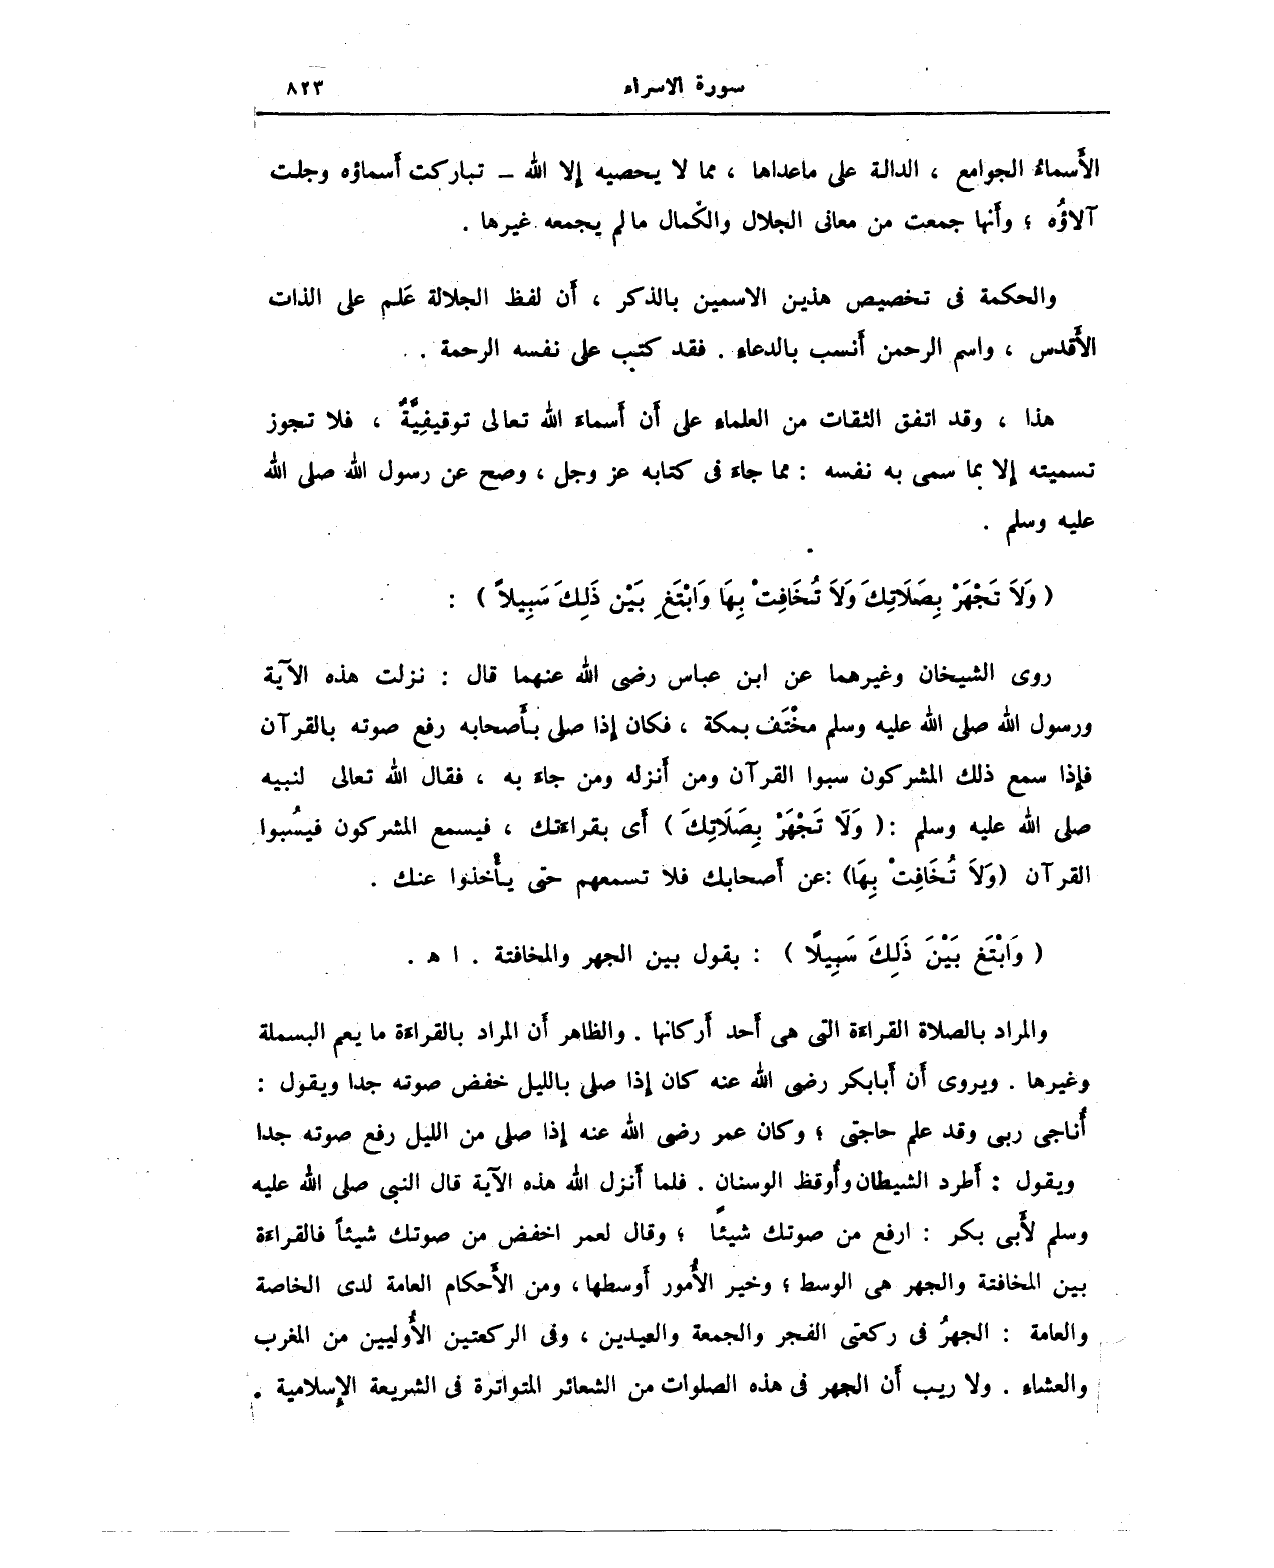 سورة الاسراء ٨٢٣
الأَسماءُ الجوامع ، الدالة على ماعداها ، مما لا يحصيه إلا الله ــ تباركت أَسماؤه وجلت
آلاؤُه ؛ وأَنها جمعت من معانى الجلال والكمال مالم يجمعه غيرها .
والحكمة فى تخصيص هذين الاسمين بالذكر ، أَن لفظ الجلالة عَلم على الذات
الأَقدس ، واسم الرحمن أَنسب بالدعاء . فقد كتب على نفسه الرحمة .
هذا ، وقد اتفق الثقات من العلماء على أَن أَسماء الله تعالى توقيفِيَّةٌ ، فلا تجوز
تسميته إلا بما سمى به نفسه : مما جاءَ فى كتابه عز وجل ، وصح عن رسول الله صلى الله
عليه وسلم .
( وَلَا تَجْهَرْ بِصَلَاتِكَ وَلَا تُخَافِتْ بِهَا وَابْتَغِ بَيْنَ ذَلِكَ سَبِيلاً ) :
روى الشيخان وغيرهما عن ابن عباس رضى الله عنهما قال : نزلت هذه الآية
ورسول الله صلى الله عليه وسلم مخْتَف بمكة ، فكان إذا صلى بأَصحابه رفع صوته بالقرآن
فإذا سمع ذلك المشركون سبوا القرآن ومن أَنزله ومن جاءَ به ، فقال الله تعالى لنبيه
صلى الله عليه وسلم :( وَلَا تَجْهَرْ بِصَلَاتِكَ ) أَى بقراءتك ، فيسمع المشركون فيسُبوا
القرآن (وَلَا تُخَافِتْ بِهَا) :عن أَصحابك فلا تسمعهم حتى يأْخذوا عنك .
( وَابْتَغِ بَيْنَ ذَلِكَ سَبِيلًا ) : يقول بين الجهر والمخافتة . ا ه .
والمراد بالصلاة القراءة التى هى أَحد أَركانها . والظاهر أَن المراد بالقراءة ما يعم البسملة
وغيرها . ويروى أَن أَبابكر رضى الله عنه كان إذا صلى بالليل خفض صوته جدا ويقول :
أُناجى ربى وقد علم حاجتى ؛ وكان عمر رضى الله عنه إذا صلى من الليل رفع صوته جدا
ويقول : أَطرد الشيطان وأُوقظ الوسنان . فلما أَنزل الله هذه الآية قال النبى صلى الله عليه
وسلم لأَبى بكر : ارفع من صوتك شيئًا ؛ وقال لعمر اخفض من صوتك شيئاً فالقراءة
بين المخافتة والجهر هى الوسط ؛ وخير الأُمور أَوسطها، ومن الأَحكام العامة لدى الخاصة
والعامة : الجهرُ فى ركعتى الفجر والجمعة والعيدين ، وفى الركعتين الأُوليين من المغرب
والعشاء . ولا ريب أَن الجهر فى هذه الصلوات من الشعائر المتواترة فى الشريعة الإسلامية .